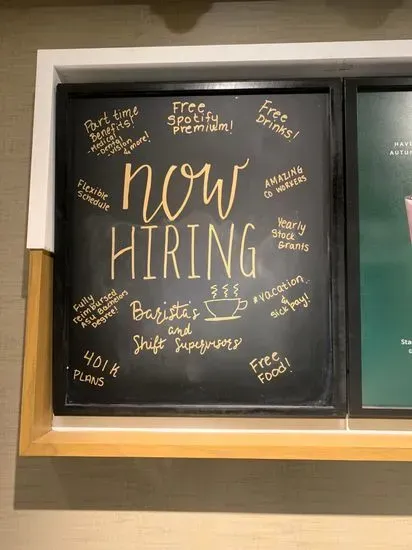 Part time
Benefits!
-Medical
-Dental
-Vision
& more!
Free
Spotify
Premium!
Free
Drinks!
Flexible
Schedule
now
HIRING
AMAZING
CO WORKERS
Yearly
Stock
Grants
Fully
reimbursed
ASU Bachelors
Degree!
Barista's
and
Shift Supervisors
#vacation
&
sick pay!
401K
PLANS
Free
Food!
HAVI
AUTUM
Sta